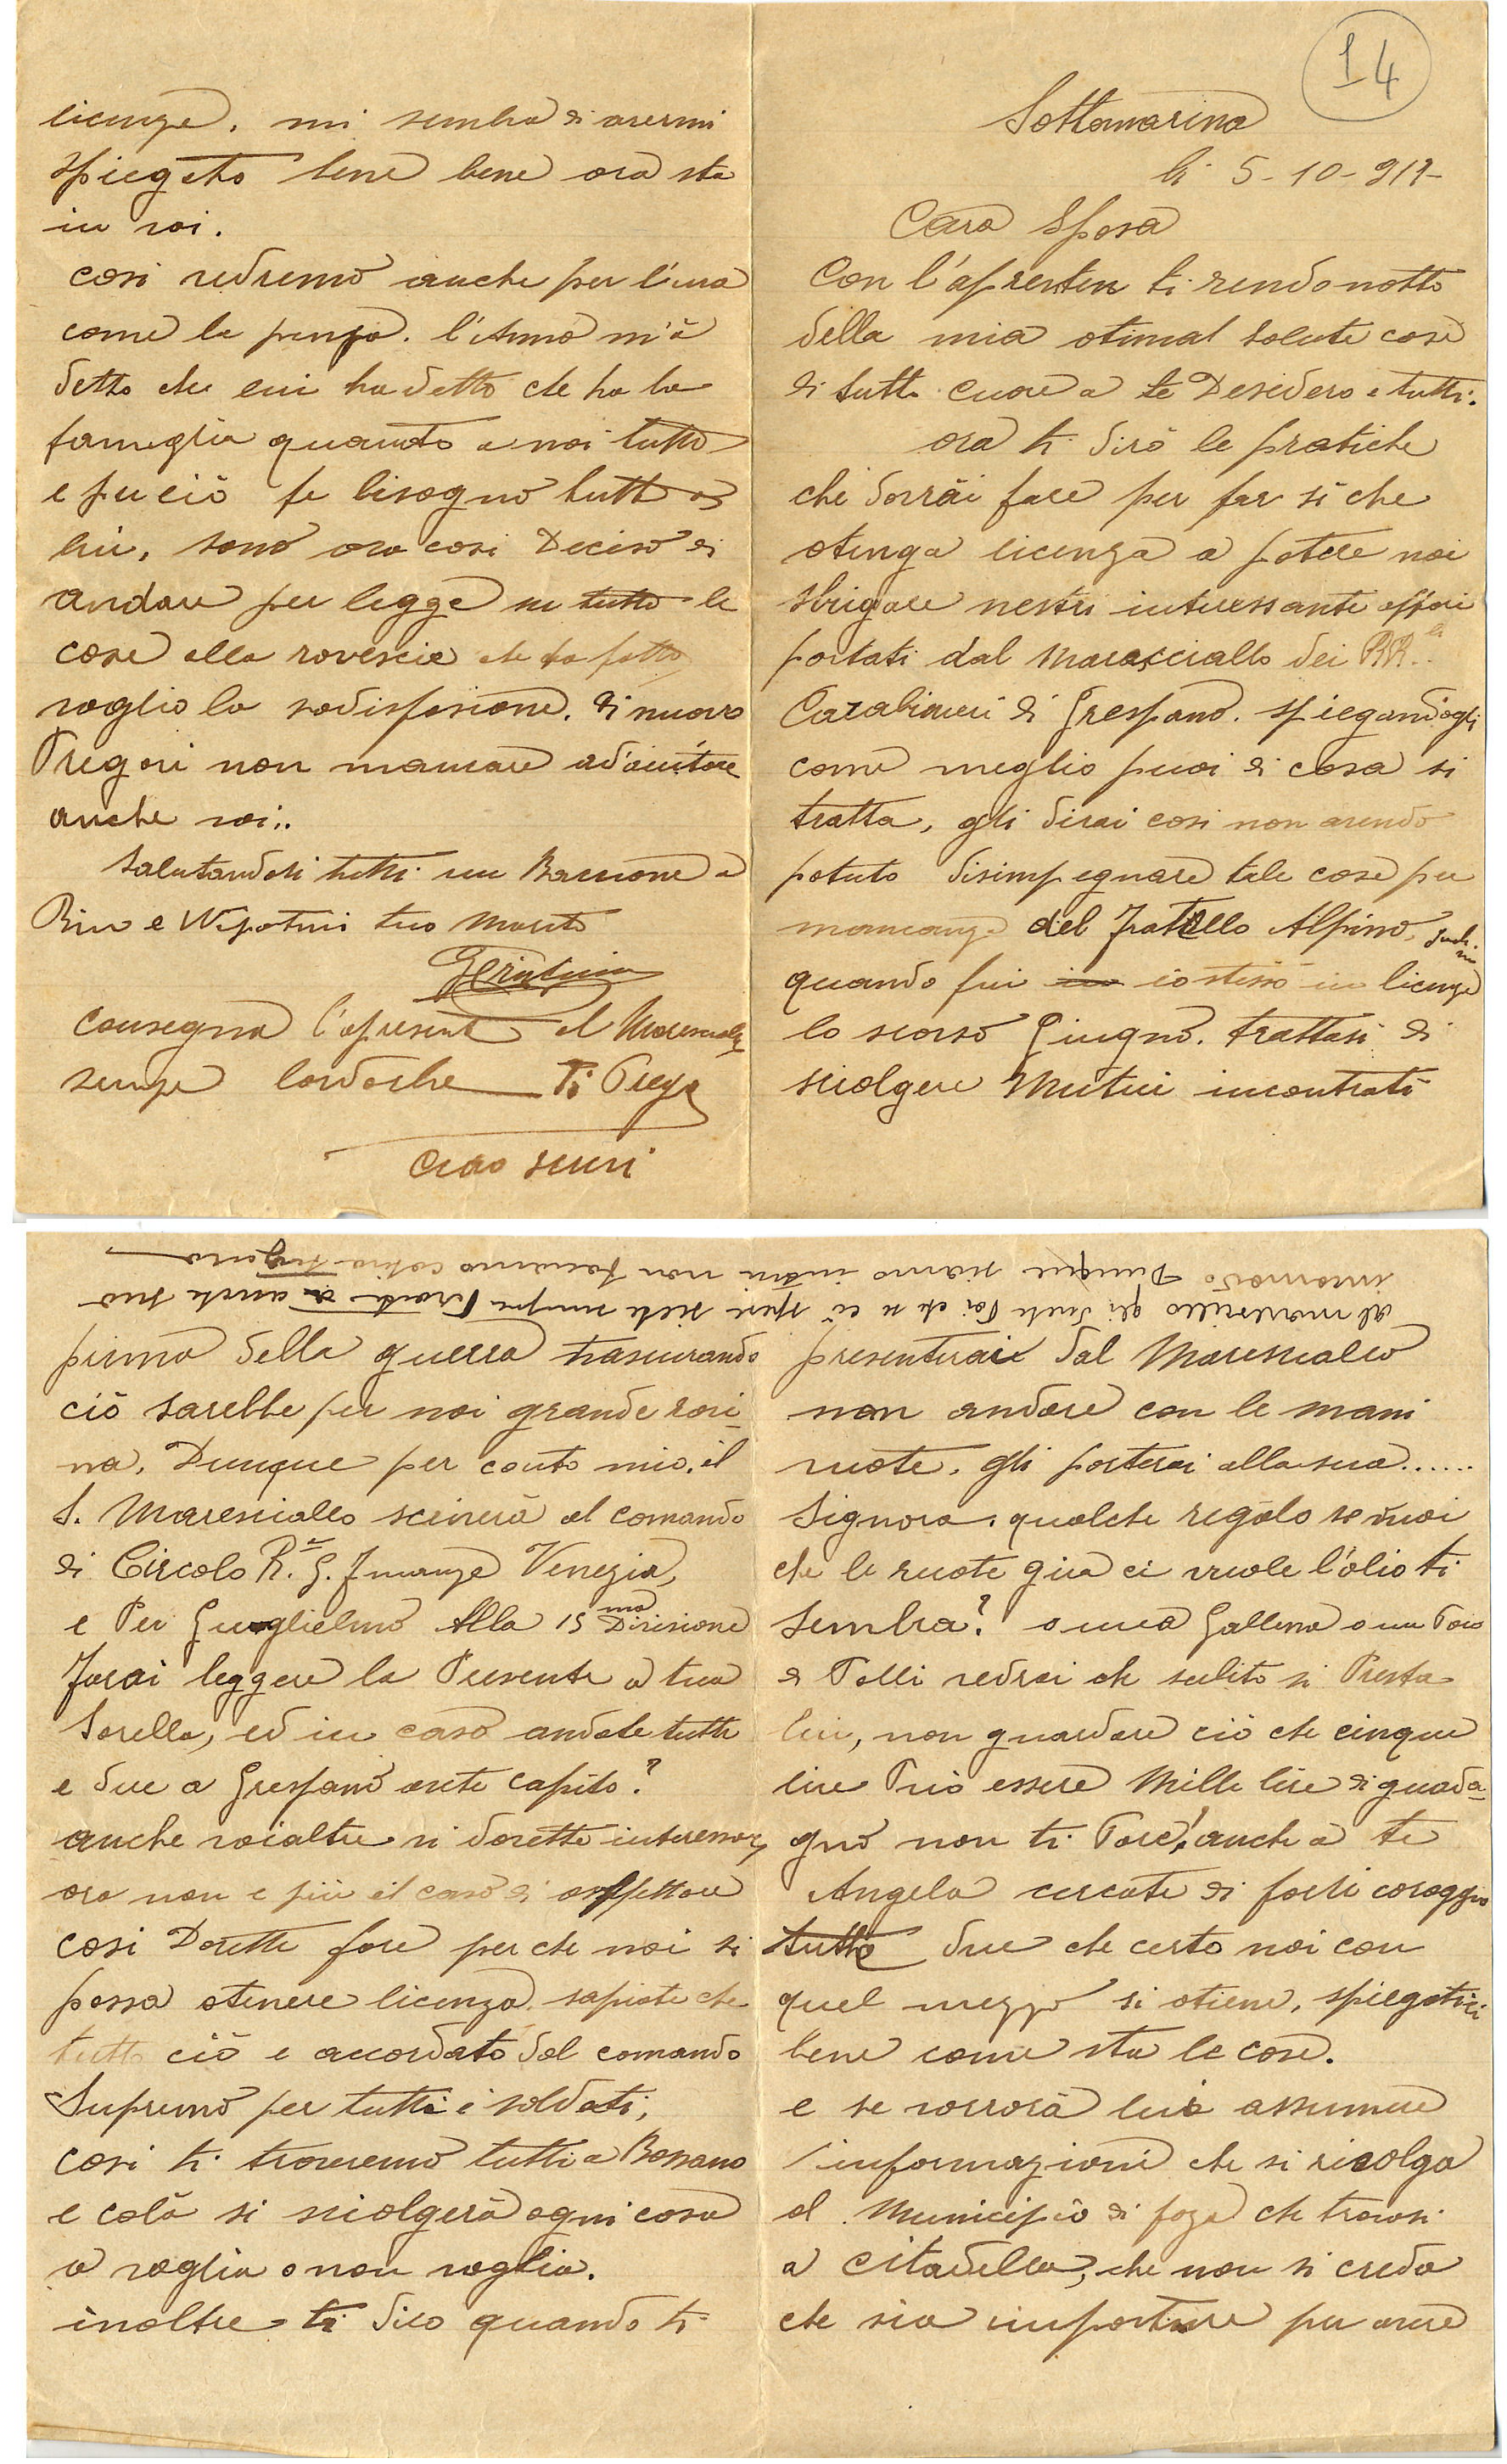 14
Sottomarina
li 5-10-917-
Cara Sposa
Con l'apresten ti rendo notto
della mia otimal salute cosi
di tutto cuore a te Desidero e tutti.
ora ti dirò le pratiche
che dorrai fare per far si che
otenga licenza a potere noi
sbrigare nestri interessante affari
portati dal Marasciallo dei RR.li
Carabinieri di Crespano. spiegandogli
come meglio puoi di cosa si
tratta, gli dirai cosi non avendo
potuto disimpegnare tale cose per
mancanza del Fratello Alpino,
quando fui io stesso in licenza
lo scorso Giugno. trattasi di
sciolgere Mutui incontrati
prima della guerra trascurando
ciò sarebbe per noi grande rovi-
na, Dunque per conto mio. il
S. Maresciallo scriverà al comando
di Circolo R.e G. Finanza Venezia,
e Per Guglielmo Alla 15ma Divisione
Farai leggere la Presente a tua
Sorella, ed in caso andate tutte
e due a Crespano avete capito?
anche voialtre vi dovette interessare
ora non e più il caso di aspettare
cosi Dovette fare per che noi si
possa otenere licenza. sapiate che
tutto ciò e accordato dal comando
Supremo per tutti i soldati,
cosi ti troveremo tutti a Bassano
e colà si sciolgerà ogni cosa
o voglia o non voglia.
inoltre ti dico quando ti
presenterai dal Maresciallo
non andare con le mani
vuote, gli porterai alla sua......
Signora, qualche regalo se vuoi
che le ruote gira ci vuole l'olio ti
sembra? o una Gallina o un Paio
di Polli vedrai che subito si Presta
lui, non guardare ciò che cinque
lire Può essere Mille lire di guada-
gno non ti Pare! anche a te
Angela cercate di farti coraggio
tutte due che certo noi con
quel mezzo si otiene, spiegatici
bene come sta le cose.
e se vorrorà lui assumere
informazioni che si rivolga
al Municipio di foza che trovasi
a Citadella, che non si creda
che sia importure per avere
licenza. mi sembra di avermi
spiegato bene bene ora sta
in voi.
cosi vedremo anche per l'una
come la pensa. l'Anno m'à
detto che lui ha detto che ha la
fameglia quanto a noi tutto
e per ciò fa bisogno tutto a
lui, sono ora cosi Deciso di
andare per legge su tutto le
cose alla rovescie che ha fatto
voglio la sodisfasione. di nuovo
Pregovi non mancare ad'aiutare
anche voi..
Salutandoti tutti un Baccione a
Rino e Nipotini tuo Marito
consegna l'apresent al Maresciallo
senza
Ti Prego
Ciao
al maresciallo gli
incomodo Dunque siamo intesi non facciamo